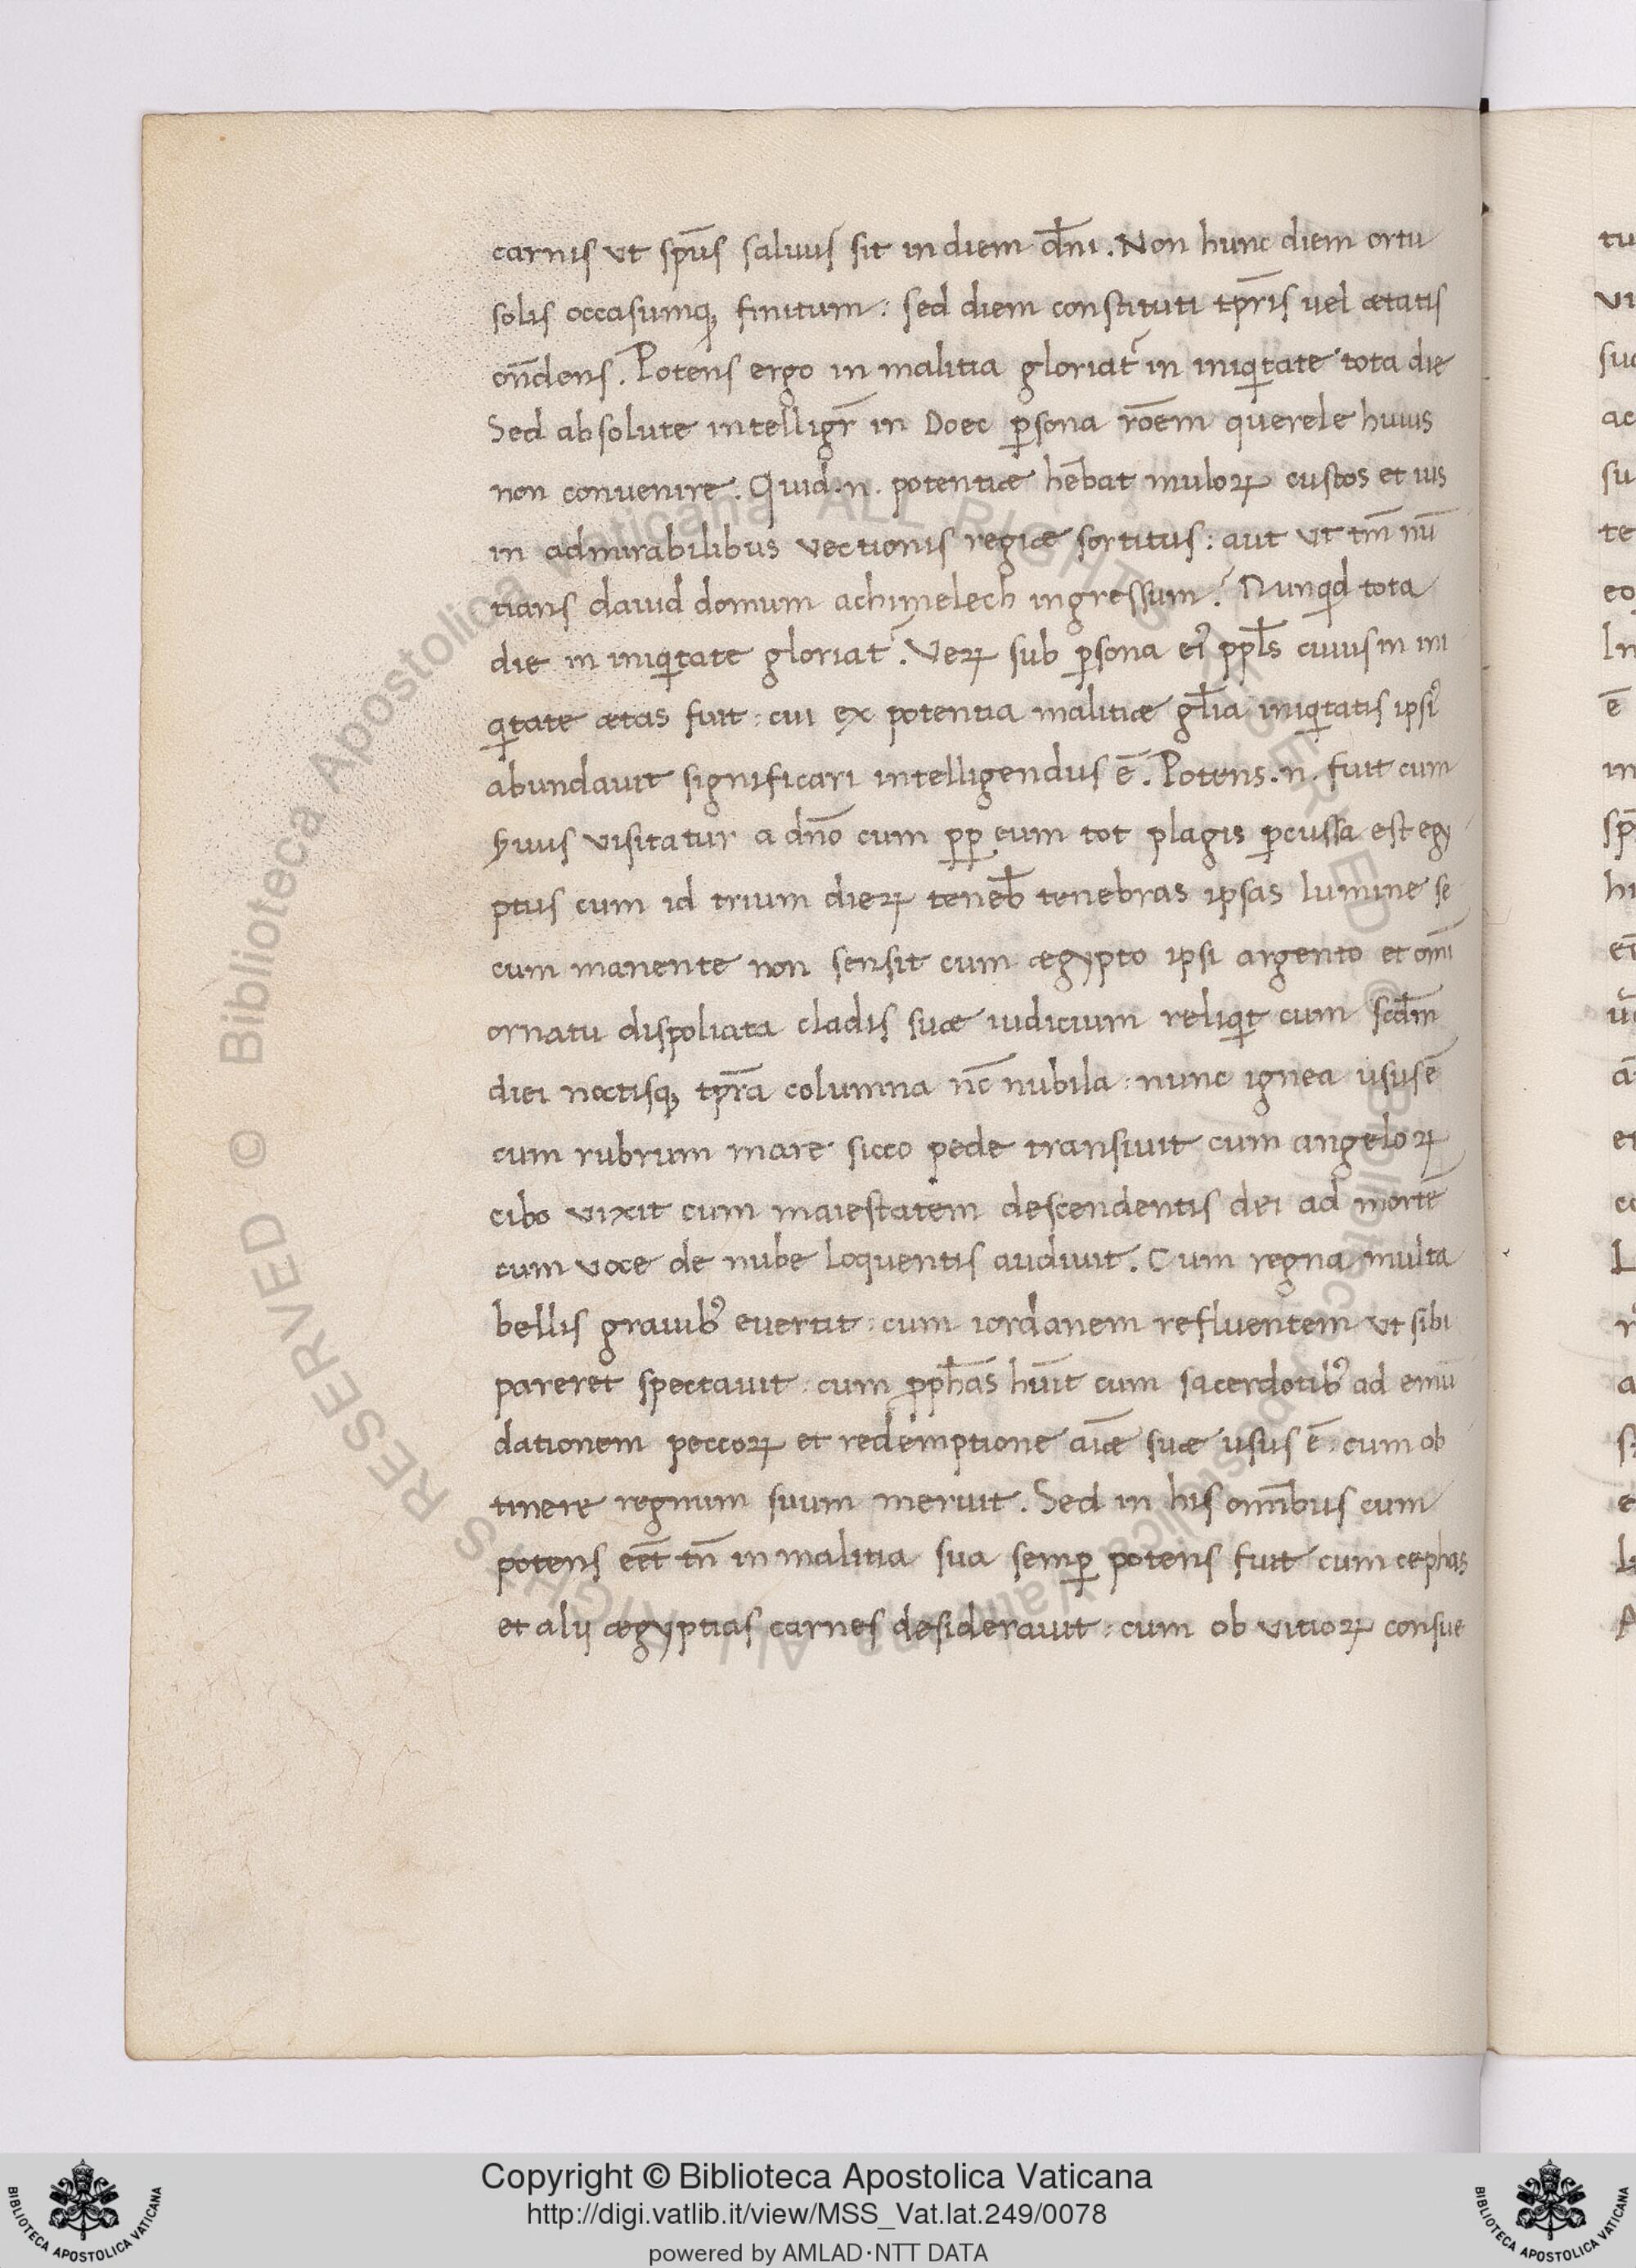 carnis ut sp̄us saluus sit in diem dn̄i. Non hunc diem ortu
solis occasumq; finitum: sed diem constituti tp̄ris uel ætatis
on̄dens. Potens ergo in malitia gloriat᷑ in iniqitate tota die
Sed absolute intelligr̄ in Doec ꝑsona rōem querele huius
non convenire. Quid .n. potentiæ hēbat muloꝝ custos et uis
in admirabilibus vectionis regiæ sortitus: aut ut tm̄ nū
tians dauid domum achimelech ingressum? Nunqid tota
die in iniqitate gloriat᷑. Veꝝ sub ꝑsona eiꝰ ppl̄s cuius in ini
qitate ætas fuit: cui ex potentia malitiæ gl̄ia iniqitatis ipsiꝰ
abundauit significari intelligendus ē. Potens .n. fuit cum
huius visitatur a dn̄o cum ꝑꝑ eum tot plagis ꝑcussa est egy
ptus cum id trium dieꝝ teneb̄ tenebras ipsas lumine se
cum manente non sensit cum ægypto ipsi argento et om̄i
ornatu dispoliata cladis suæ iudicium reliqit cum scd̄m
diei noctisq; tp̄ra columna nc̄ nubila: nunc ignea usus ē
cum rubrum mare sicco pede transiuit cum angeloꝝ
cibo vixit cum maiestatem descendentis dei ad mortē
cum voce de nube loquentis audiuit. Cum regna multa
bellis grauibꝰ euertit: cum iordanem refluentem ut sibi
pareret spectauit: cum ꝓph̄as hūit cum sacerdotibꝰ ad emū
dationem peccoꝝ et redemptione aīæ suæ usus ē: cum ob
tinere regnum suum meruit. Sed in his om̄ibus cum
potens eēt tn̄ in malitia sua semꝑ potens fuit cum cephas
et alij ægyptias carnes desiderauit: cum ob vitioꝝ consue
tu
vi
ac
te
ē
in
hi
et
Biblioteca Apostolica Vaticana ALL RIGHTS RESERVED ©
Biblioteca Apostolica Vaticana ALL RIGHTS RESERVED ©
Copyright © Biblioteca Apostolica Vaticana
http://digi.vatlib.it/view/MSS_Vat.lat.249/0078
powered by AMLAD·NTT DATA
BIBLIOTECA APOSTOLICA VATICANA
BIBLIOTECA APOSTOLICA VATICANA